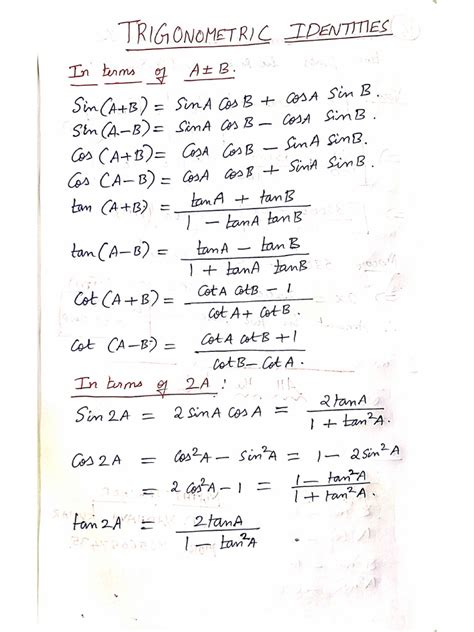 TRIGONOMETRIC IDENTITIES
In terms of A±B:
Sin(A+B) = SinA CosB + CosA SinB.
Sin(A-B) = SinA CosB - CosA SinB.
Cos(A+B) = CosA CosB - SinA SinB.
Cos(A-B) = CosA CosB + SinA SinB.
tan(A+B) = (tanA + tanB) / (1 - tanA tanB)
tan(A-B) = (tanA - tanB) / (1 + tanA tanB)
Cot(A+B) = (CotA CotB - 1) / (CotA + CotB.)
Cot (A-B) = (CotA CotB + 1) / (CotB - CotA.)
In terms of 2A :
Sin2A = 2 SinA CosA = 2tanA / (1 + tan²A.)
Cos2A = Cos²A - Sin²A = 1 - 2Sin²A
= 2Cos²A - 1 = (1 - tan²A) / (1 + tan²A.)
tan2A = 2tanA / (1 - tan²A)